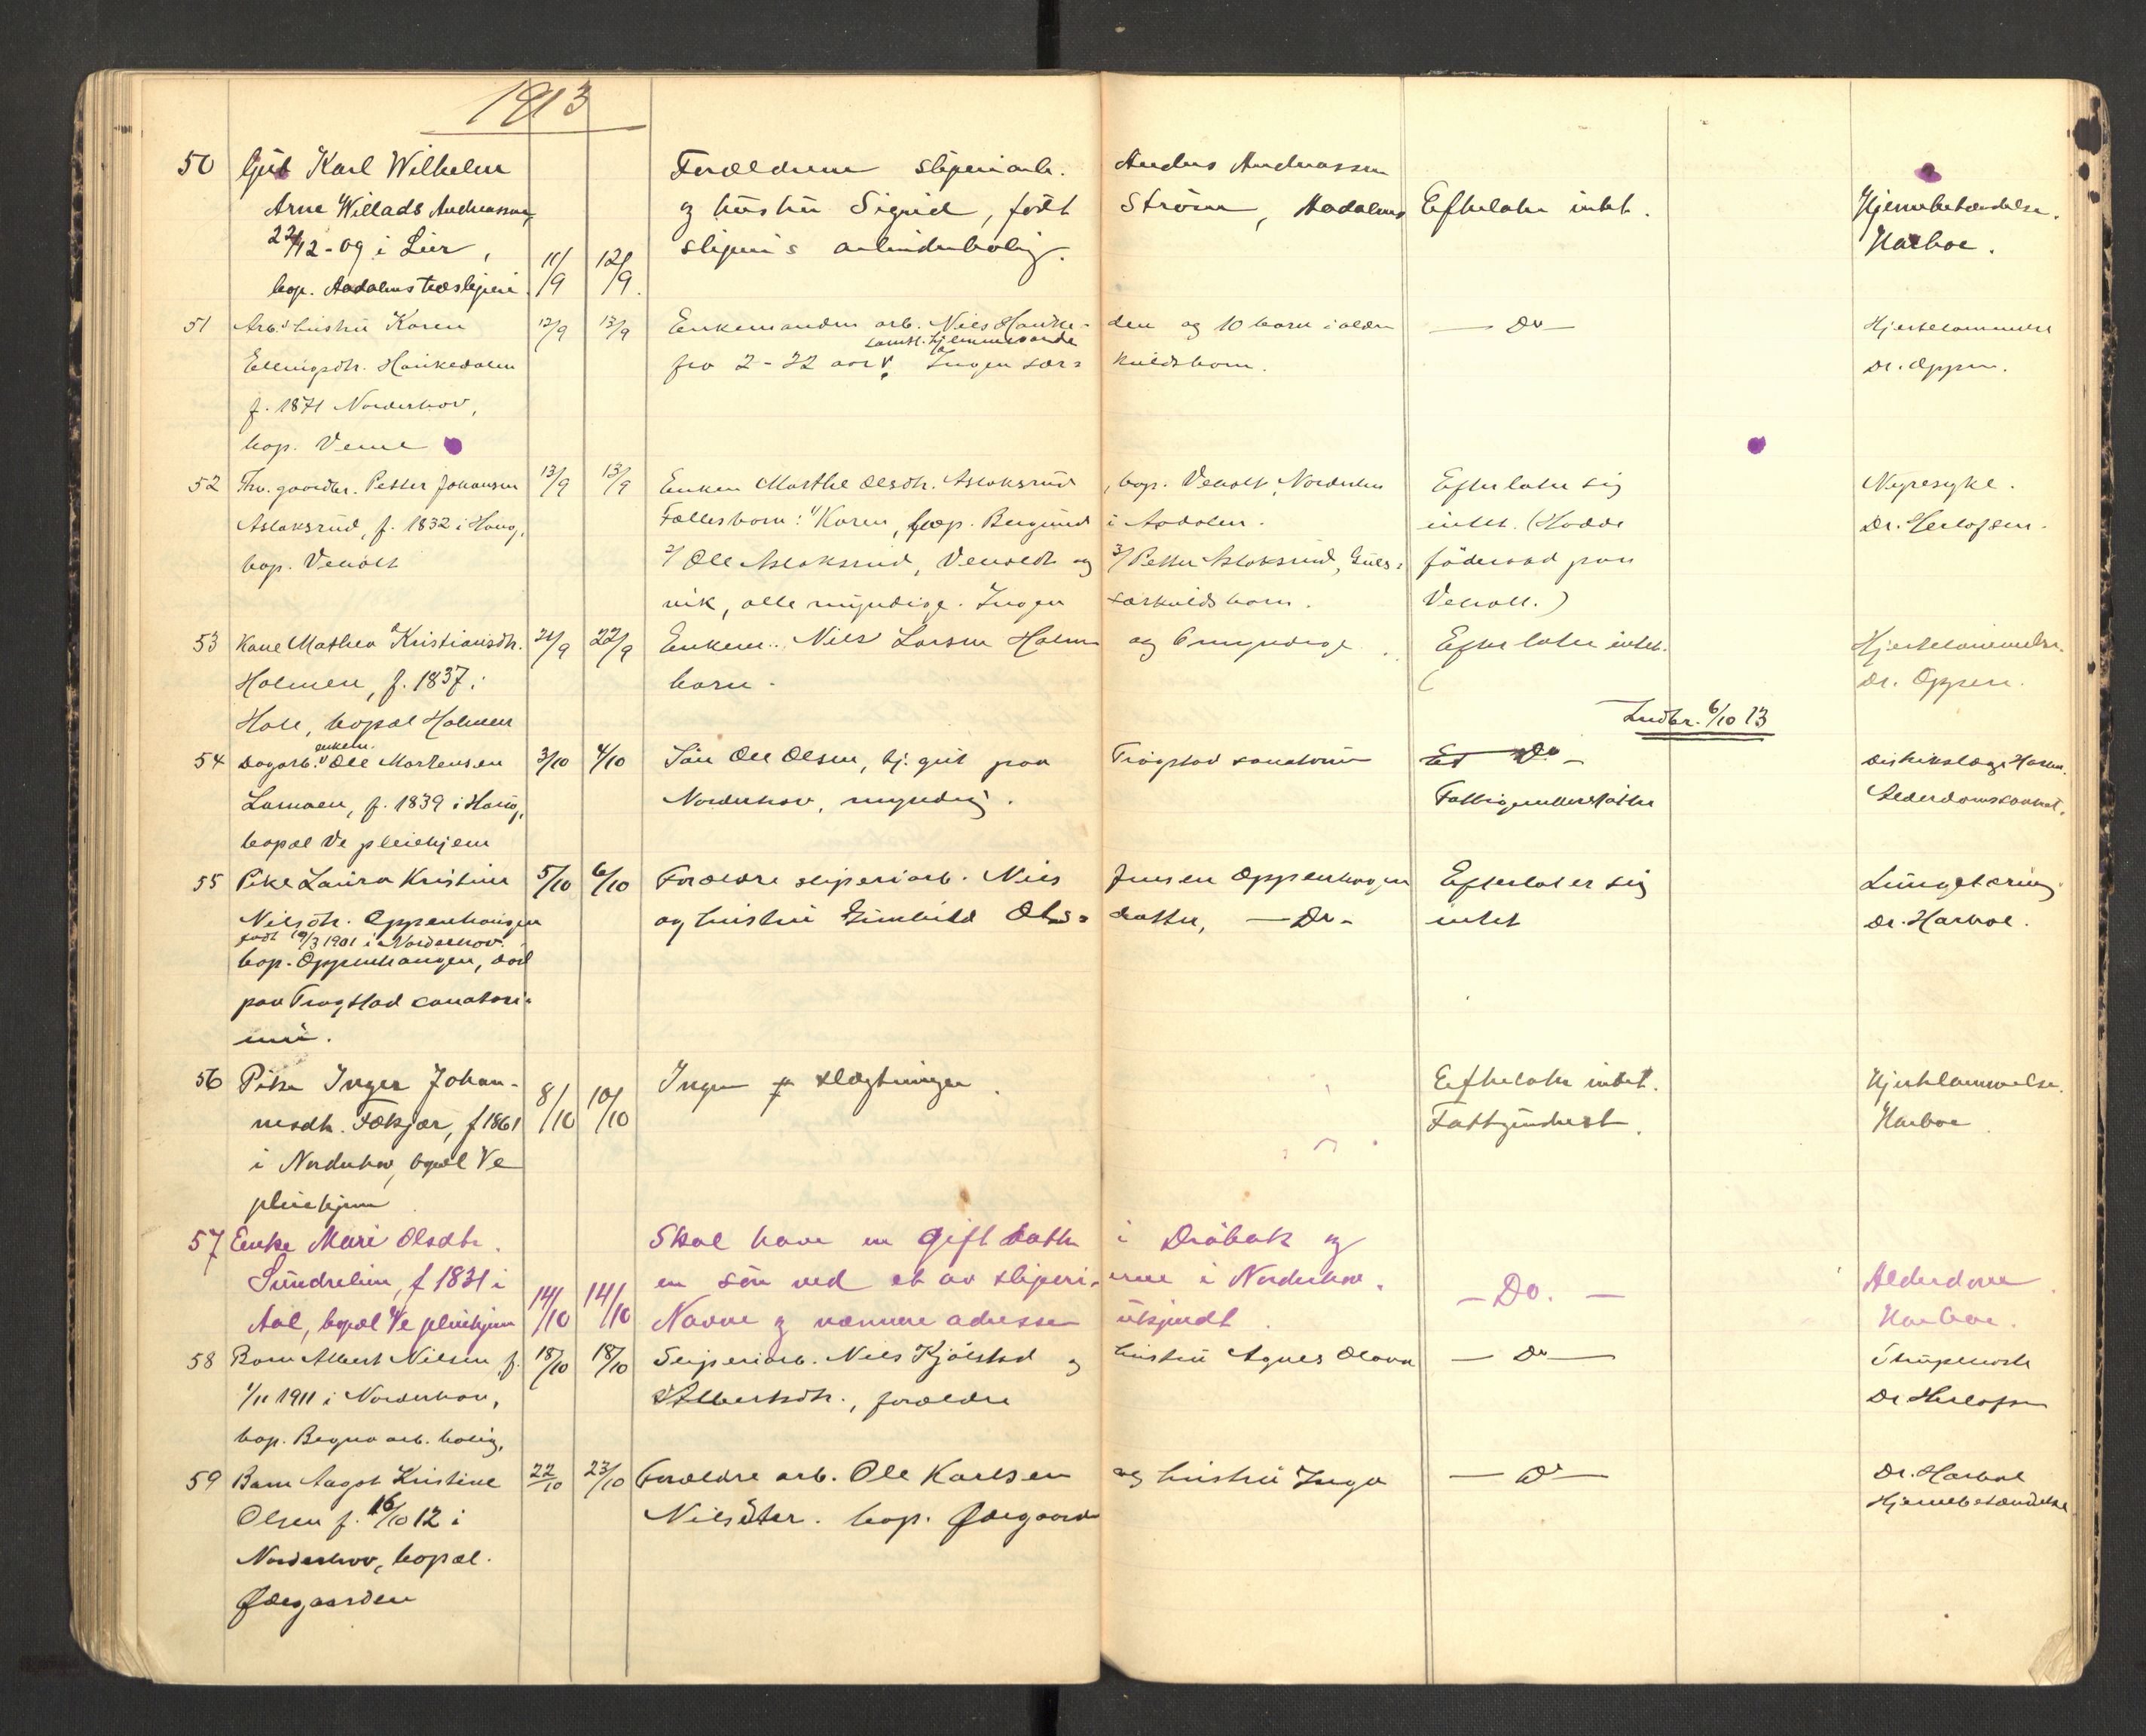 1913
50 Gut Karl Wilhelm
Arne Willads Andreassen,
22/12-09 i Lier,
bop. Aadalens træsliperi
11/9 12/9
Forældrene sliperiarb. Anders Andreassen
og hustru Sigrid, født Strøm, Aadalens
sliperis arbeiderbolig.
Efterlater intet.
Hjernebetændelse.
Harboe.
51 Arb.s hustru Karen
Ellingsdtr. Haukedalen
f. 1871 Norderhov,
bop. Veme
12/9 13/9
Enkemanden arb. Nils Hauke- den og 10 barn i alder
samtl. hjemmeværende
fra 2-22 aar. Ingen sær- kuldsbarn.
— Do —
Hjertelammelse
Dr. Oppen.
52 Fhv. gaardbr. Petter Johansen
Aslaksrud, f. 1832 i Haug,
bop. Veholt
13/9 13/9
Enken Marthe Olsdtr. Aslaksrud, bop. Veholt, Norderhov
Fællesbarn: 1/ Karen, bop. Bergsund i Aadalen.
2/ Ole Aslaksrud, Veholdt og 3/ Petter Aslaksrud, Guls-
vik, alle myndige. Ingen særkuldsbarn.
Efterlater sig
intet. (Hadde
føderaad paa
Veholt.)
Nyresyke.
Dr. Herlofsen.
53 Kone Mathea Kristiansdtr.
Holmen, f. 1837 i
Hole, bopæl Holmen
21/9 22/9
Enkem. Nils Larsen Holmen og 6 myndige
barn.
Efterlater intet.
Hjertelammelse.
Dr. Oppen.
Indbr. 6/10 13
54 Dagarb. enkem. Ole Mortensen
f. 1839 i Haug,
bopæl Ve pleiehjem
3/10 4/10
Søn Ole Olsen, hj. gut paa Tragstad sanatorium
Norderhov, myndig.
Do —
Fattigunderstøttet
Distriktslæge Harboe.
55 Pike Laura Kristine
Nilsdtr. Oppenhaugen
født 19/3 1901 i Norderhov.
bop. Oppenhaugen, død
paa Tragstad sanatori-
um.
5/10 6/10
Forældre sliperiarb. Nils Jensen Oppenhaugen
og hustru Gunhild Ols- datter, — Do —
Efterlater sig
intet
Lungetæring
Dr. Harboe.
56 Pike Inger Johan-
nesdtr. Fækjær, f 1861
i Norderhov, bopæl Ve
pleiehjem
8/10 10/10
Ingen slægtninger.
Efterlater intet.
Fattigunderst.
Hjertelammelse.
Harboe
57 Enke Mari Olsdtr.
Sundrelien, f 1831 i
Aal, bopæl Ve pleiehjem
14/10 14/10
Skal have en gift datter i Drøbak og
en søn ved et av sliperi- erne i Norderhov.
Navne og nærmere adresser ukjendt.
— Do. —
Alderdom
Harboe.
58 Barn Albert Nilsen f.
1/11 1911 i Norderhov,
bop. Begna arb. bolig,
18/10 18/10
Sliperiarb. Nils Kjølstad og hustru Agnes Olava
Albertsdtr., forældre
— Do —
Strupehoste
Dr Herlofsen
59 Barn Aagot Kristine
Olsen f. 16/10 12 i
Norderhov, bopæl.
Øiegaarden
22/10 23/10
Forældre arb. Ole Karlsen og hustru Inga
Nilsdtr. bop. Øiegaarden
— Do —
Dr. Harboe
Hjernebetændelse